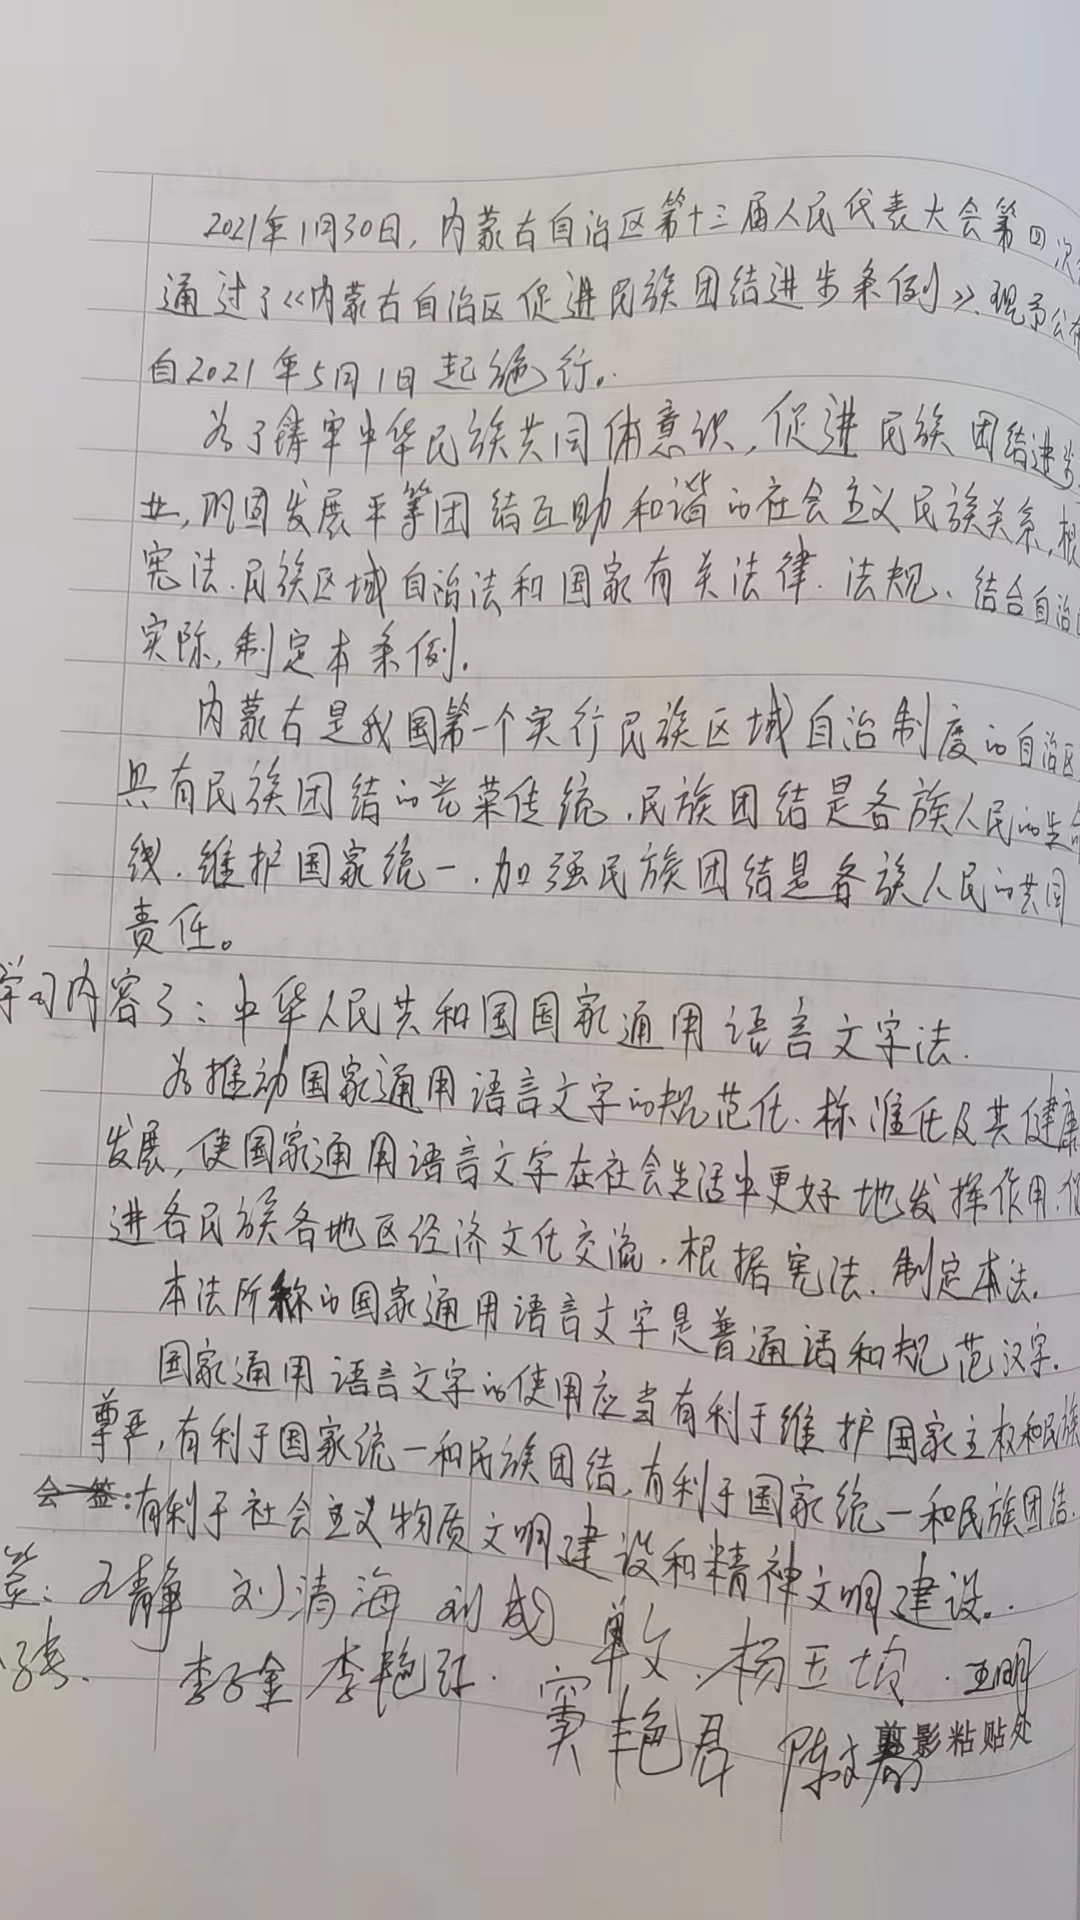 2021年1月30日，内蒙古自治区第十三届人民代表大会第四次
通过了《内蒙古自治区促进民族团结进步条例》、现予公布
自2021年5月1日起施行。
为了铸牢中华民族共同体意识，促进民族团结进步
业，巩固发展平等团结互助和谐的社会主义民族关系，根
宪法、民族区域自治法和国家有关法律、法规、结合自治区
实际，制定本条例。
内蒙古是我国第一个实行民族区域自治制度的自治区
具有民族团结的光荣传统，民族团结是各族人民的生命
线，维护国家统一，加强民族团结是各族人民的共同
责任。
学习内容3：中华人民共和国国家通用语言文字法.
为推动国家通用语言文字的规范化、标准化及其健康
发展，使国家通用语言文字在社会生活中更好地发挥作用，促
进各民族各地区经济文化交流，根据宪法，制定本法。
本法所称的国家通用语言文字是普通话和规范汉字.
国家通用语言文字的使用应当有利于维护国家主权和民族
尊严，有利于国家统一和民族团结，有利于国家统一和民族团结.
会签：有利于社会主义物质文明建设和精神文明建设。
刘清海 单文 杨玉 王明
李子金 李艳红 窦艳君 陈文
剪影粘贴处